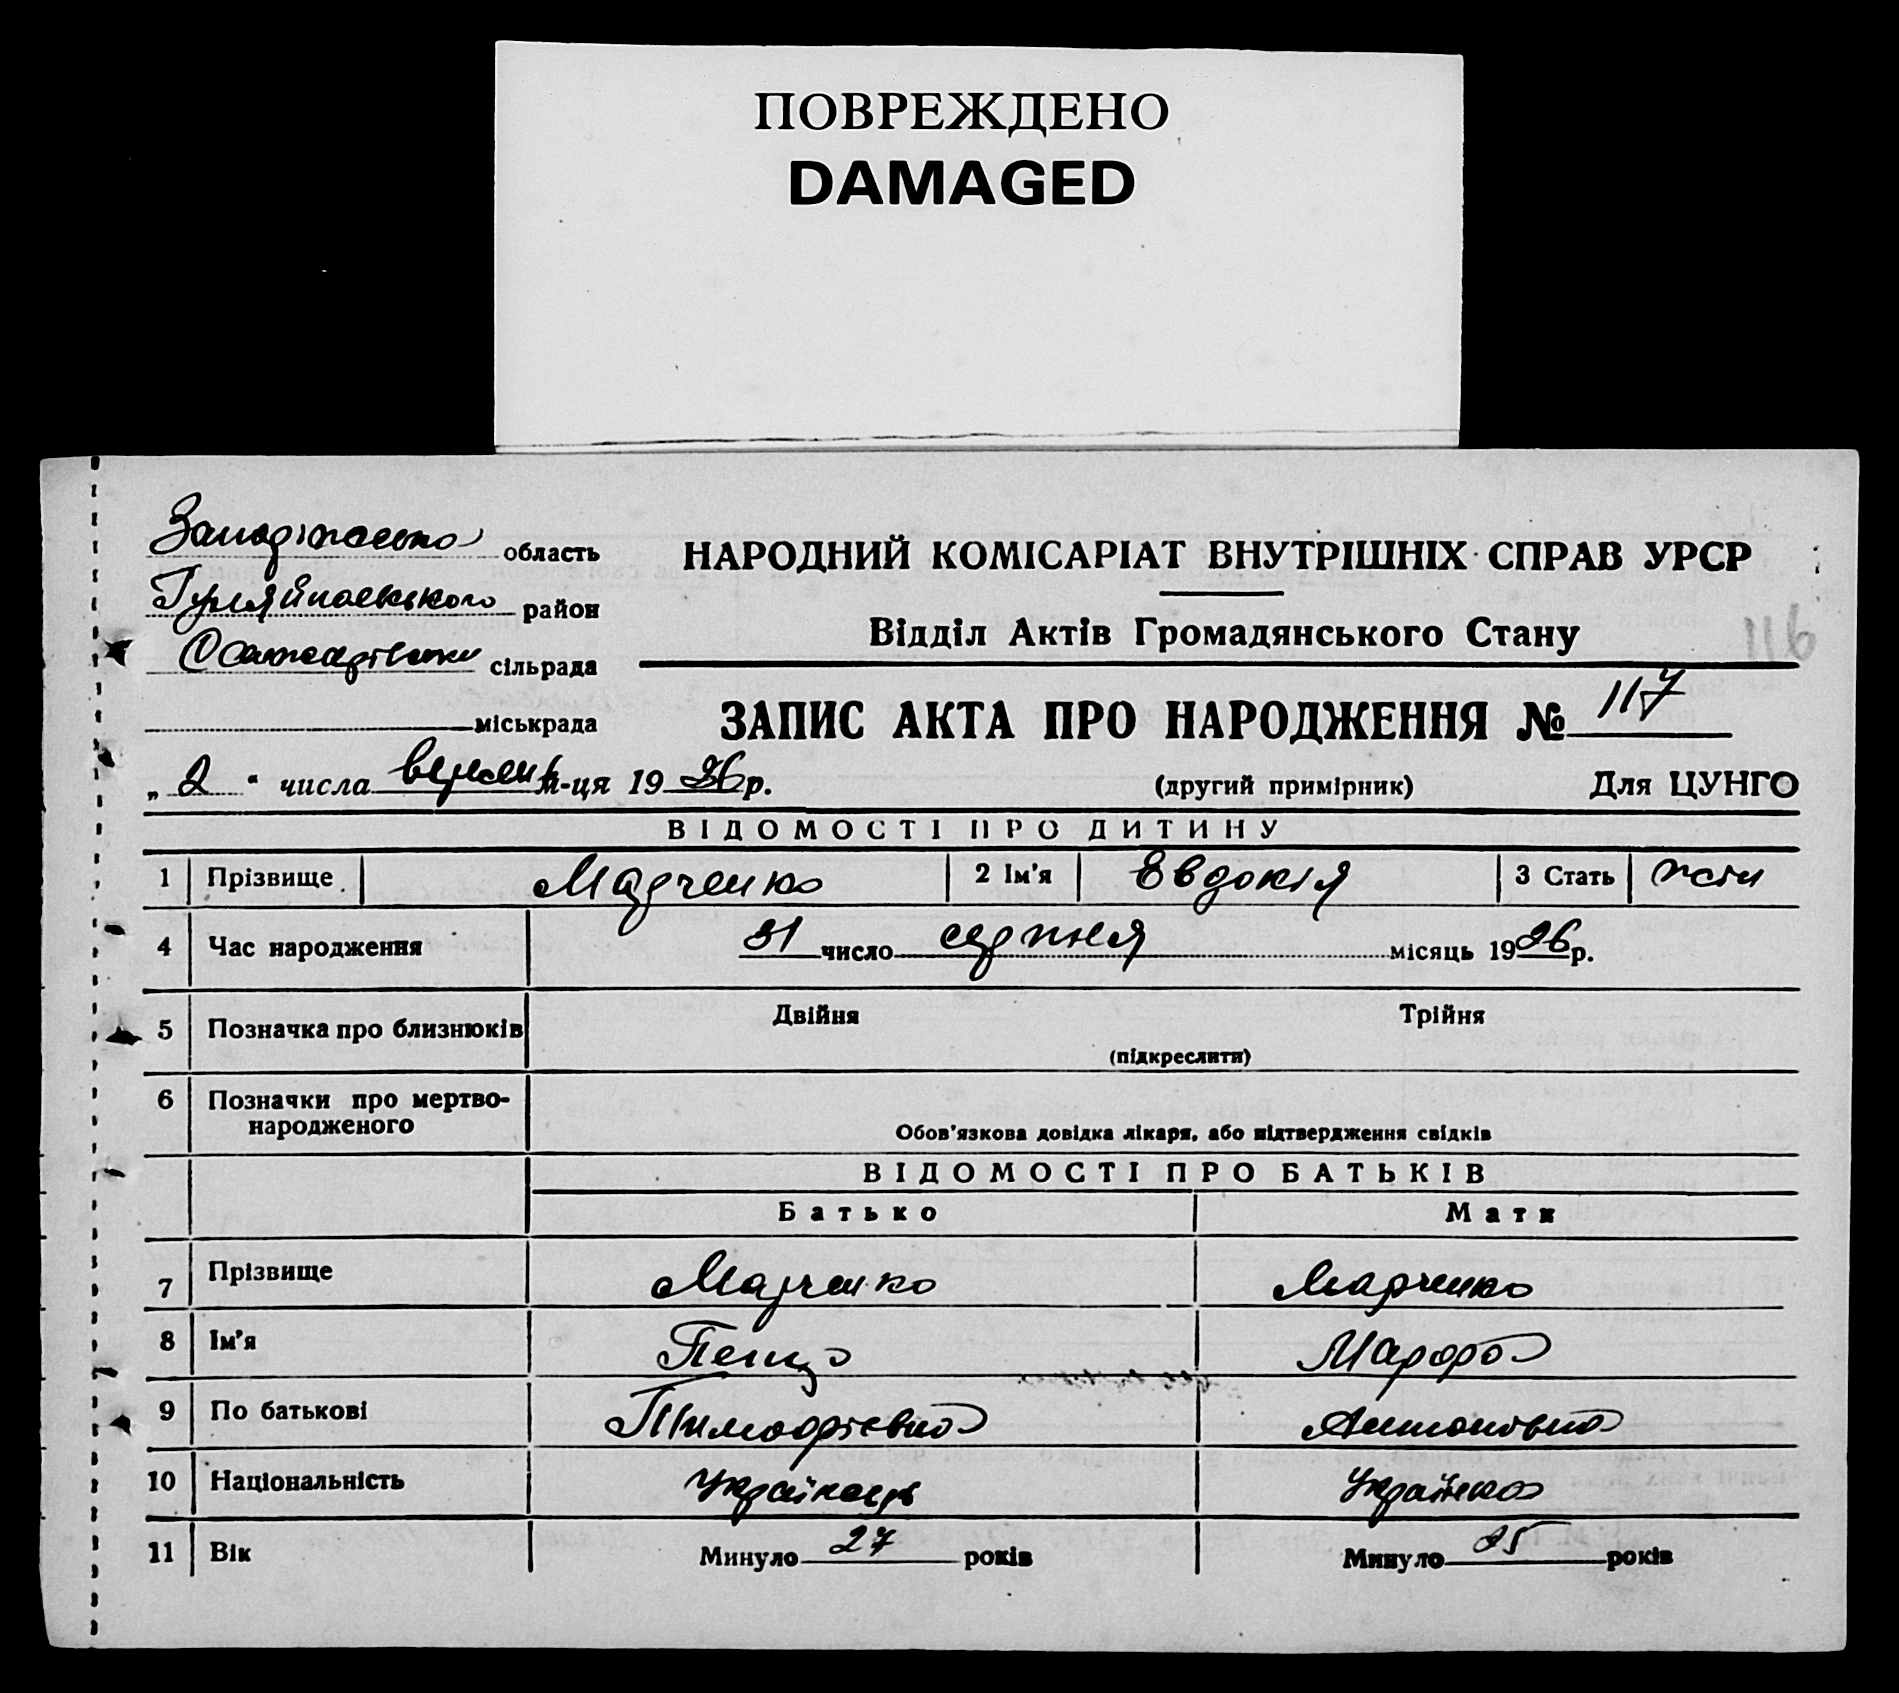 ПОВРЕЖДЕНО
DAMAGED
область
НАРОДНИЙ КОМІСАРІАТ ВНУТРІШНІХ СПРАВ УРСР
район
Відділ Актів Громадянського Стану
116
сільрада
міськрада
ЗАПИС АКТА ПРО НАРОДЖЕННЯ № 117
„ 2 “ числа вересень м-ця 19 36 р.
(другий примірник) Для ЦУНГО
ВІДОМОСТІ ПРО ДИТИНУ
1 Прізвище Марченко 2 Ім'я Евдокія 3 Стать
4 Час народження 31 число серпня місяць 19 36 р.
5 Позначка про близнюків Двійня Трійня
(підкреслити)
6 Позначки про мертво-
народженого
Обов'язкова довідка лікаря, або підтвердження свідків
ВІДОМОСТІ ПРО БАТЬКІВ
Батько Мати
7 Прізвище Марченко Марченко
8 Ім'я Марфа
9 По батькові Антоновна
10 Національність Українець Українка
11 Вік Минуло 27 років Минуло 25 років